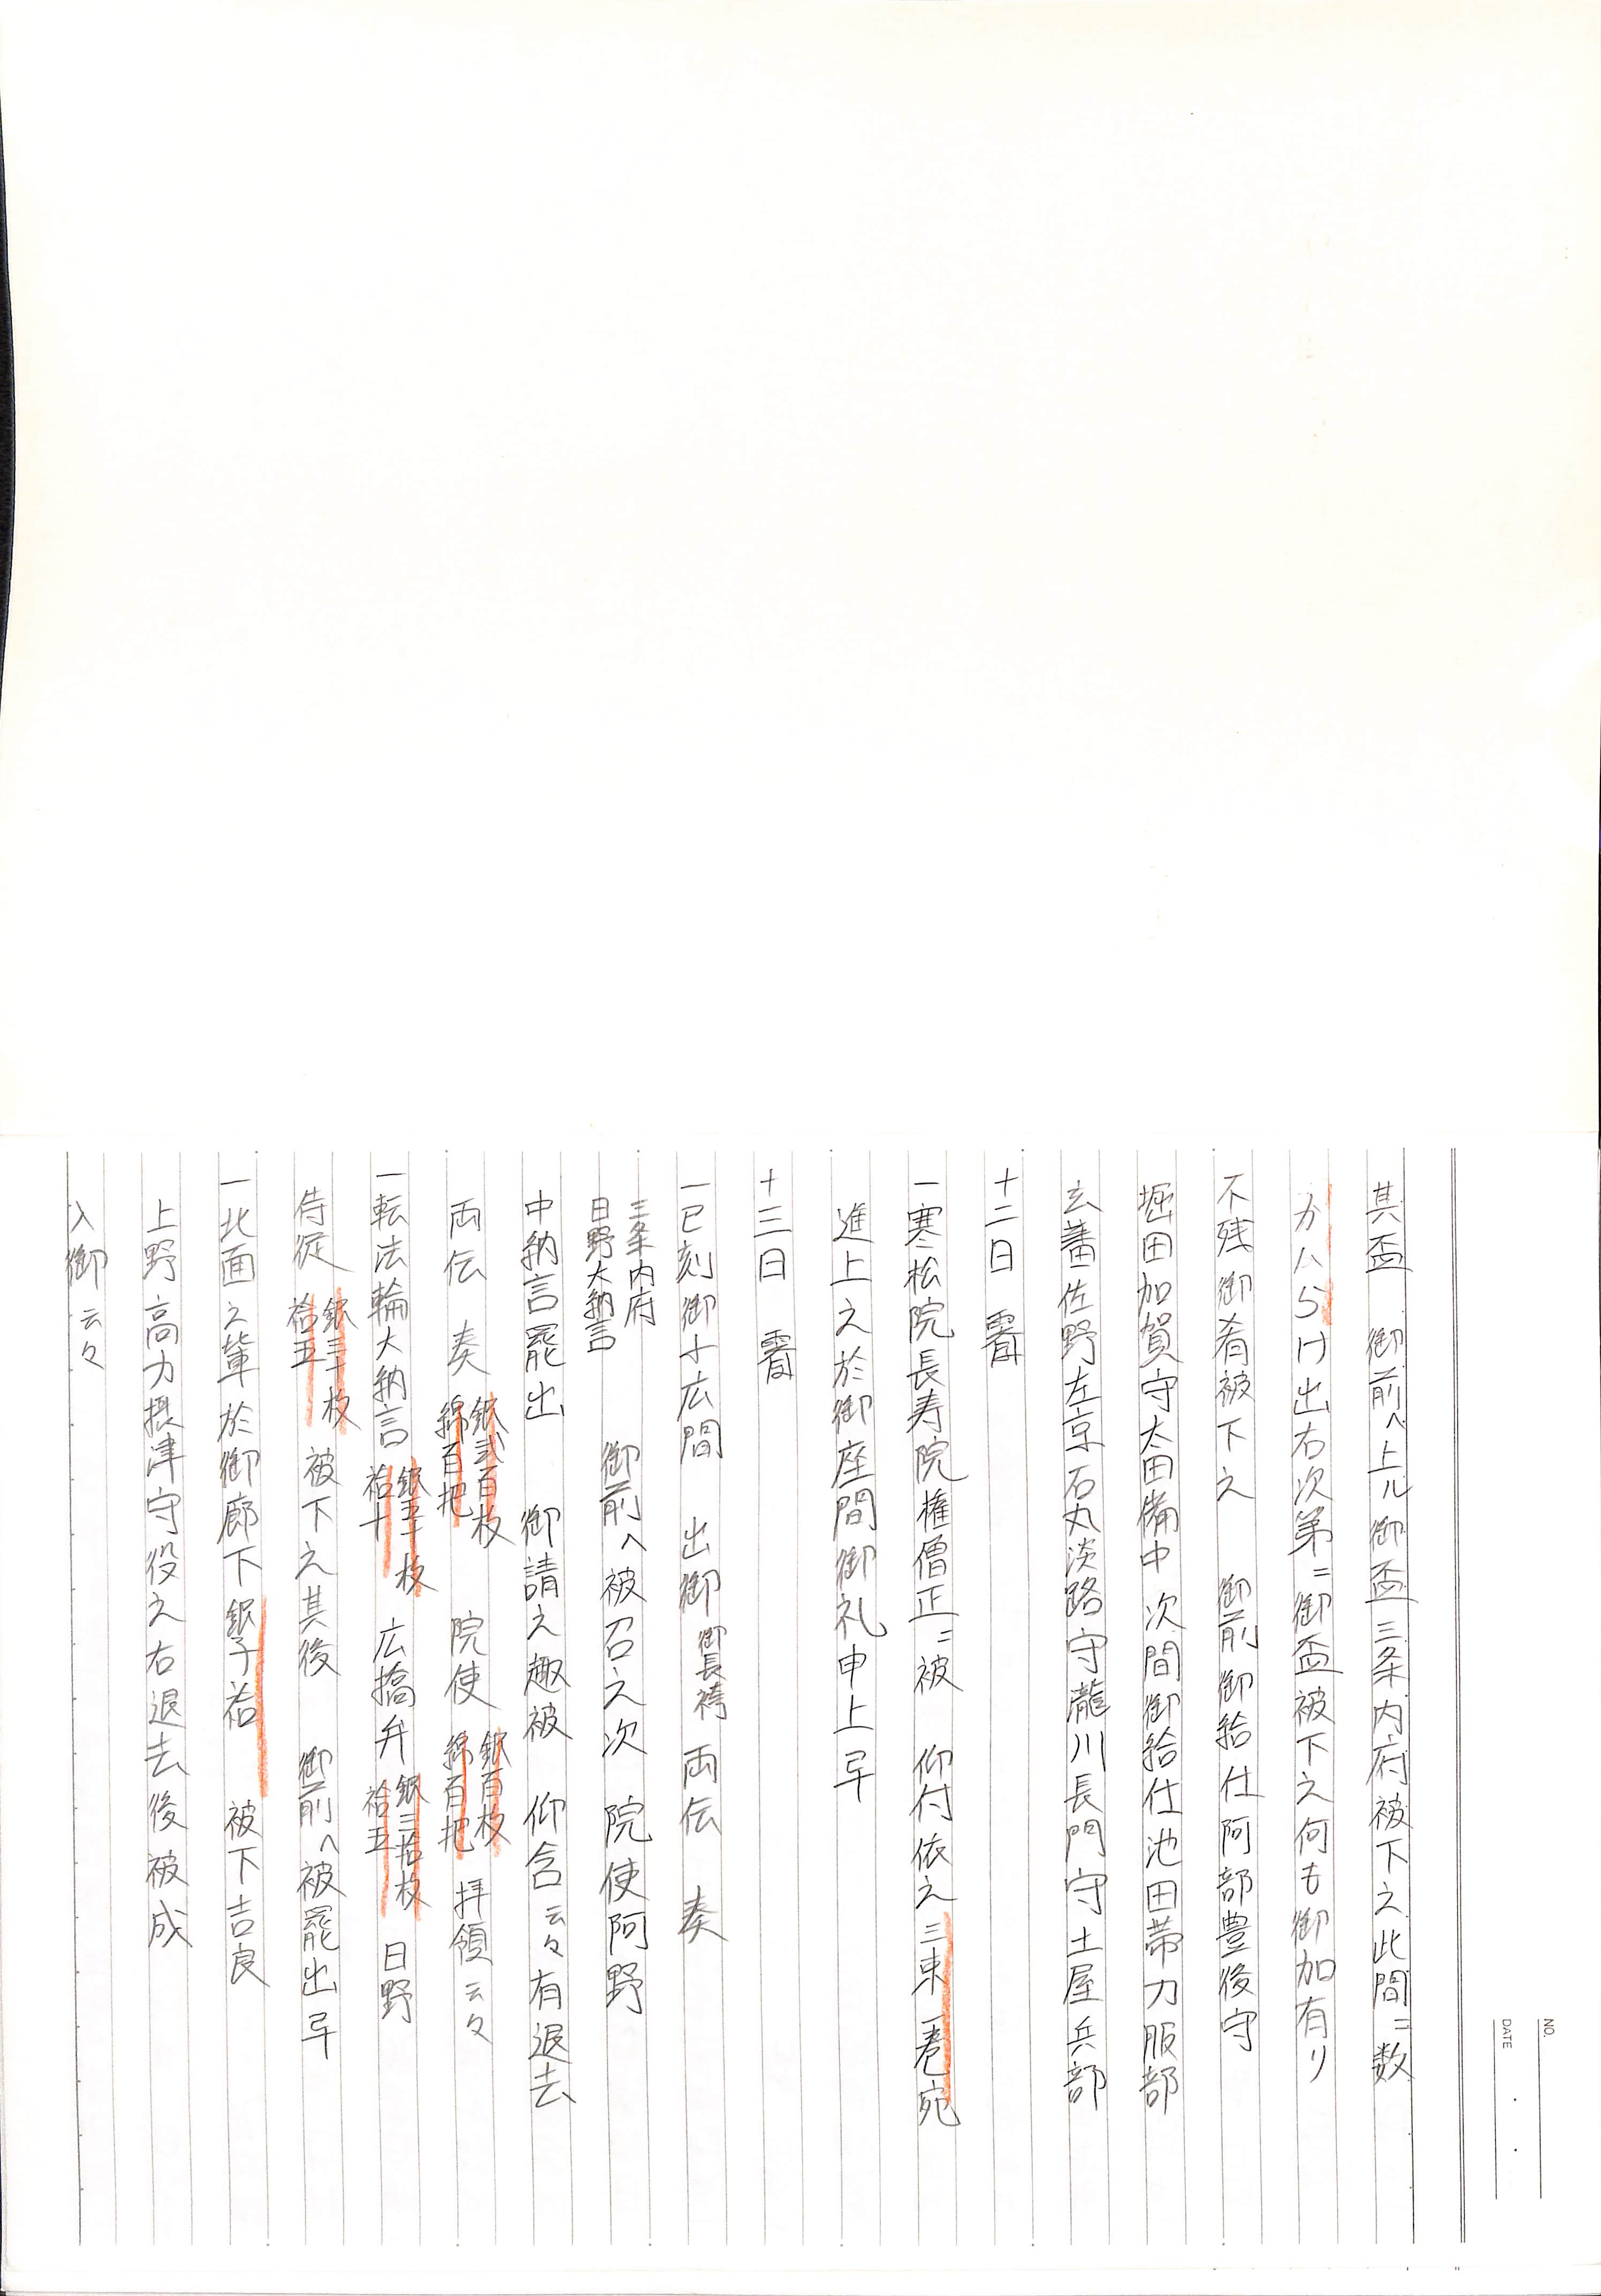 NO.
DATE
其盃　御前へ上ル御盃三条内府被下之此間ニ数
カハらけ出右次第ニ御盃被下之何も御加有リ
不残御肴被下之　御前御給仕阿部豊後守
堀田加賀守太田備中次間御給仕池田帯刀服部
玄蕃佐野左京石丸淡路守瀧川長門守土屋兵部
十二日　霽
一寒松院長寿院権僧正ニ被　仰付依之三束一巻宛
進上之於御座間御礼申上早
十三日　霽
一巳刻御小広間　出御御長袴両伝　奏
三条内府
日野大納言　御前へ被召之次　院使阿野
中納言罷出　御請之趣被　仰含云々有退去
両伝　奏 銀弐百枚 綿百把　院使 銀百枚 綿百把 拝領云々
一転法輪大納言 銀五十枚 袷十　広橋弁 銀三拾枚 袷五　日野
侍従 銀三十枚 袷五　被下之其後　御前へ被罷出早
一北面之輩於御廊下銀子袷　被下吉良
上野高力摂津守役之右退去後被成
入御云々